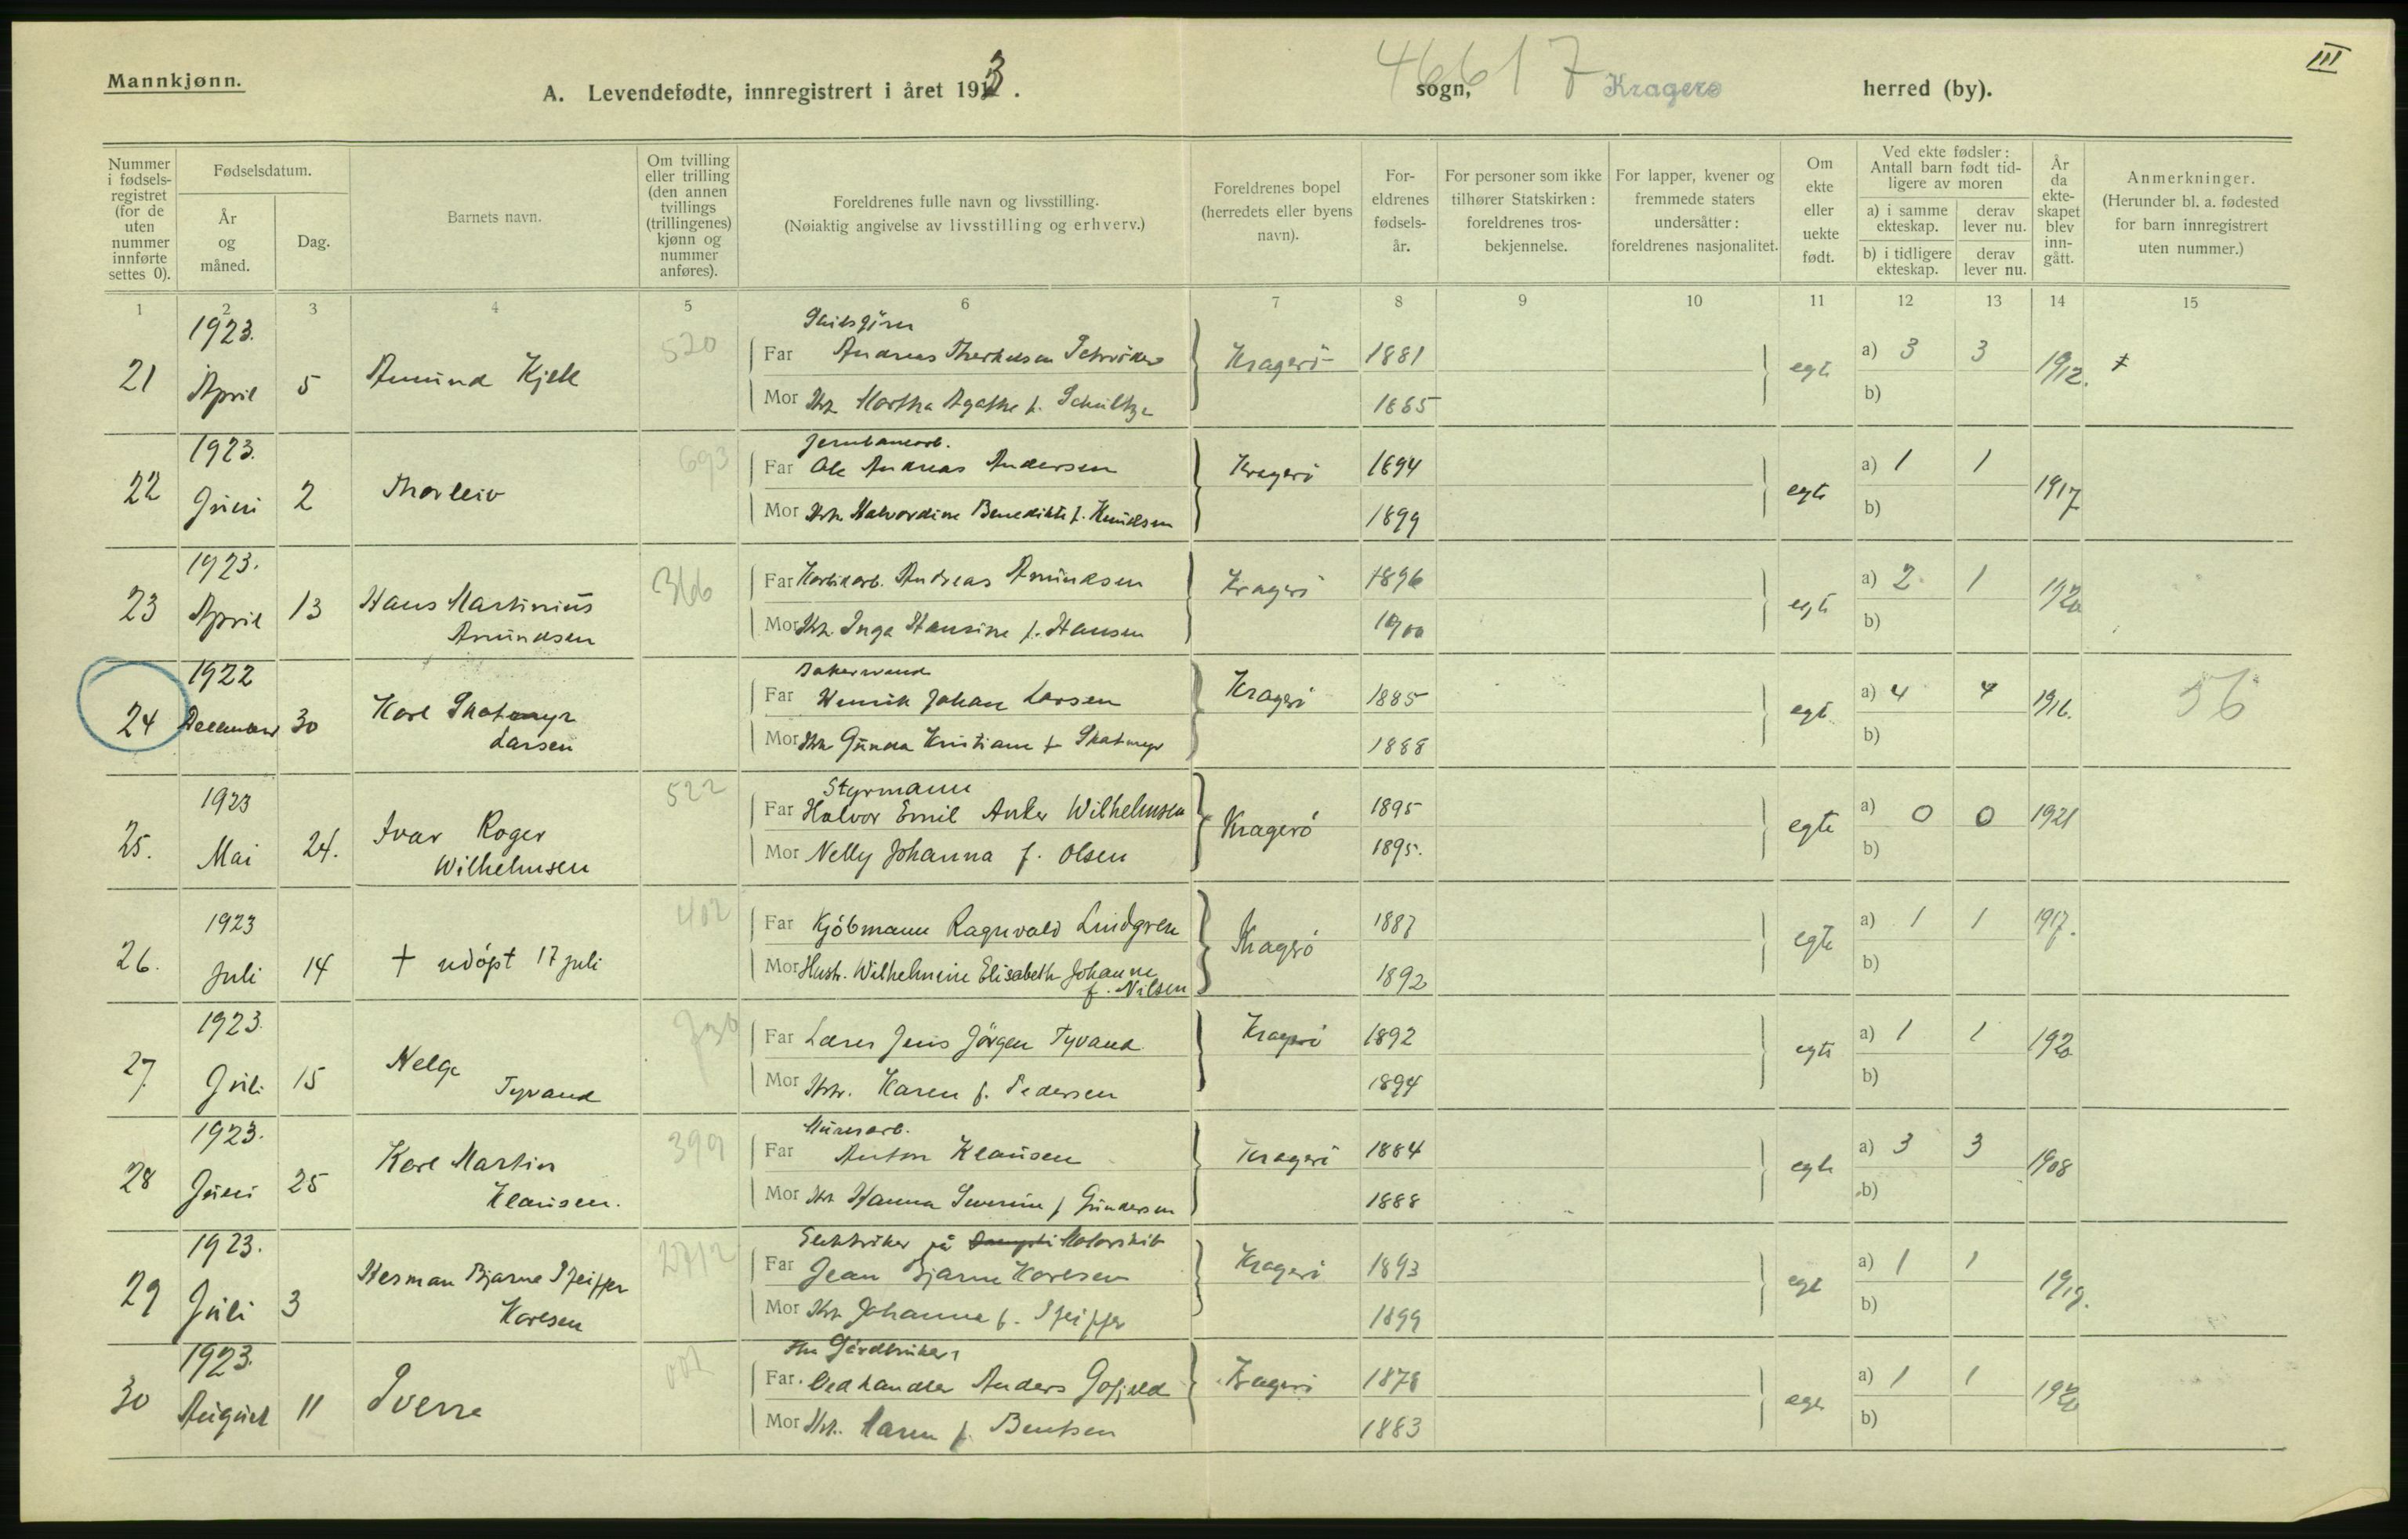 III
Mannkjønn.
A. Levendefødte, innregistrert i året 1913.
46617
sogn, Kragerø herred (by).
Nummer i fødsels-registret (for de uten nummer innførte settes 0).
Fødselsdatum.
År og måned.
Dag.
Barnets navn.
Om tvilling eller trilling (den annen tvillings (trillingenes) kjønn og nummer anføres).
Foreldrenes fulle navn og livsstilling.
(Nøiaktig angivelse av livsstilling og erhverv.)
Foreldrenes bopel (herredets eller byens navn).
For-eldrenes fødsels-år.
For personer som ikke tilhører Statskirken: foreldrenes tros-bekjennelse.
For lapper, kvener og fremmede staters undersåtter: foreldrenes nasjonalitet.
Om ekte eller uekte født.
Ved ekte fødsler: Antall barn født tid-ligere av moren
a) i samme ekteskap.
derav lever nu.
b) i tidligere ekteskap.
derav lever nu.
År da ekte-skapet blev inn-gått.
Anmerkninger.
(Herunder bl. a. fødested for barn innregistrert uten nummer.)
1 2 3 4 5 6 7 8 9 10 11 12 13 14 15
21 1923. April 5 Amund Kjell 520
Far Andreas Schrøder Kragerö 1881 egte a) 3 3 1912.
Mor Hstr. Martha Agathe f. Schultze 1885 b)
22 1923. Juni 2 Thorleiv 693
Jernbanearb.
Far Ole Andreas Andersen Kragerö 1894 egte a) 1 1 1917
Mor Hstr. Halvordine Benedikte f. Knudsen 1899 b)
23 1923. April 13 Hans Martinius Amundsen 366
Far Karbidarb. Andreas Amundsen Kragerö 1896 egte a) 2 1 1920
Mor Hstr. Inga Hansine f. Hansen 1900 b)
24 1922 December 30 Karl Skatmyr Larsen
Bakersvend
Far Henrik Johan Larsen Kragerö 1885 egte a) 4 4 1916. 56
Mor Hstr Gunda Kristiane f Skatmyr 1888 b)
25. 1923 Mai 24. Ivar Roger Wilhelmsen 522
Styrmann
Far Halvor Emil Anker Wilhelmsen Kragerö 1895 egte a) 0 0 1921
Mor Nelly Johanna f. Olsen 1895. b)
26. 1923 Juli 14 + udöpt 17 juli 402
Far Kjöbmann Ragnvald Lindgren Kragerö 1887 egte a) 1 1 1917.
Mor Hustr. Wilhelmine Elisabeth Johanne f. Nilsen 1892 b)
27 1923. Juli 15 Helge Tyvand
Far Lærer Jens Jörgen Tyvand Kragerö 1892 egte a) 1 1 1920
Mor Hstr. Karen f. Pedersen 1894 b)
28 1923. Juni 25 Karl Martin Klausen. 399
Murerarb.
Far Anton Klausen Kragerö 1884 egte a) 3 3 1908
Mor Hstr Hanna Severine f Gundersen 1888 b)
29 1923. Juli 3 Herman Bjarne Pfeiffer Karlsen 2712
Elektriker på Motorskib
Far Jean Bjarne Karlsen Kragerö 1893 egte a) 1 1 1919.
Mor Hstr Johanne f. Pfeiffer 1899 b)
30 1923. August 11 Sverre
Gårdbruker
Far Vedhandler Anders Gofjeld Kragerö 1878 egte a) 1 1 1920
Mor Hstr. Maren f. Bentsen 1883 b)